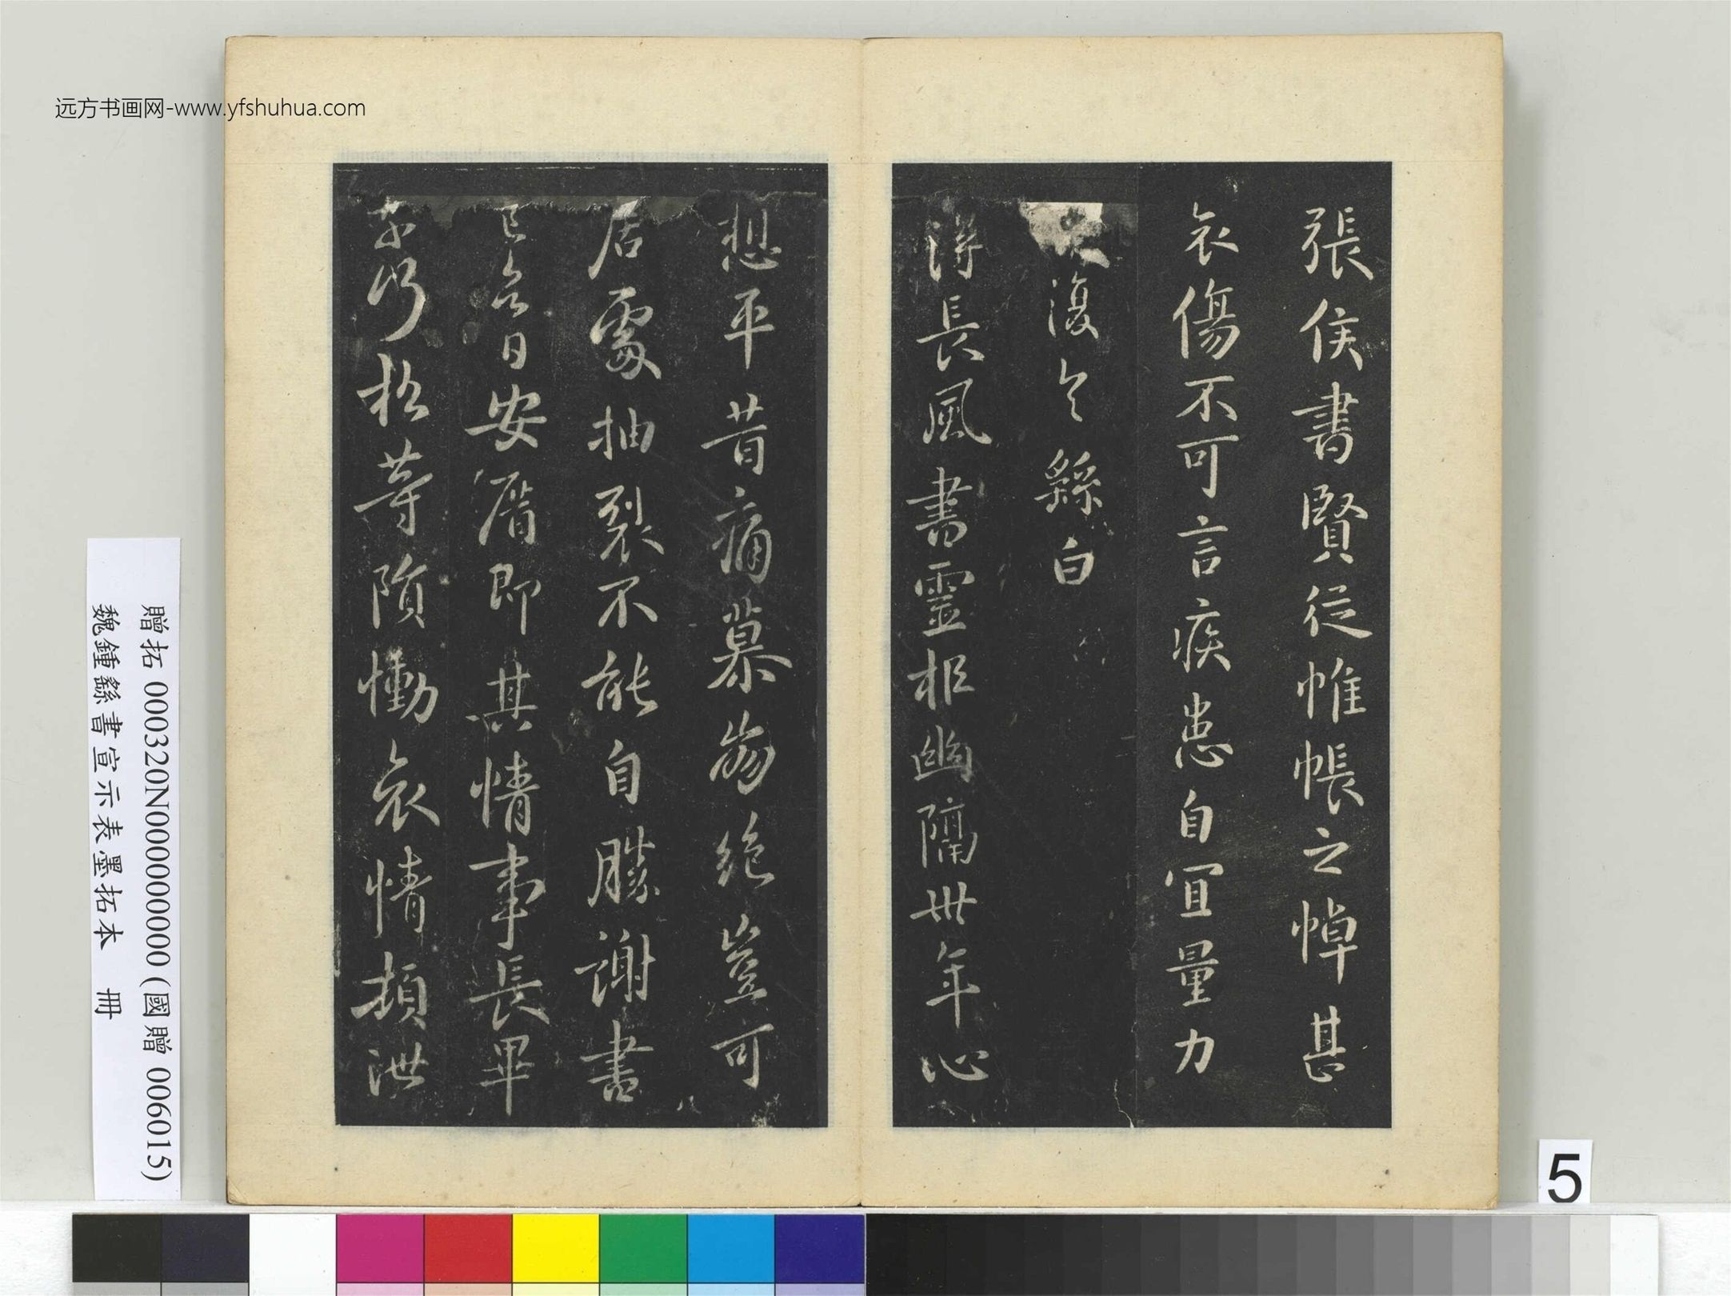 远方书画网-www.yfshuhua.com
張侯書賢從帷帳之悼甚
哀傷不可言疾患自宜量力
復繇白
得長風書靈柩幽隔卅年心
想平昔痛慕崩絕豈可
居處抽裂不能自勝謝書
已日安厝即其情事長畢
松等隕慟哀情頓泄
贈拓 000320N000000000 (國贈 006015)
魏鍾繇書宣示表墨拓本 冊
5